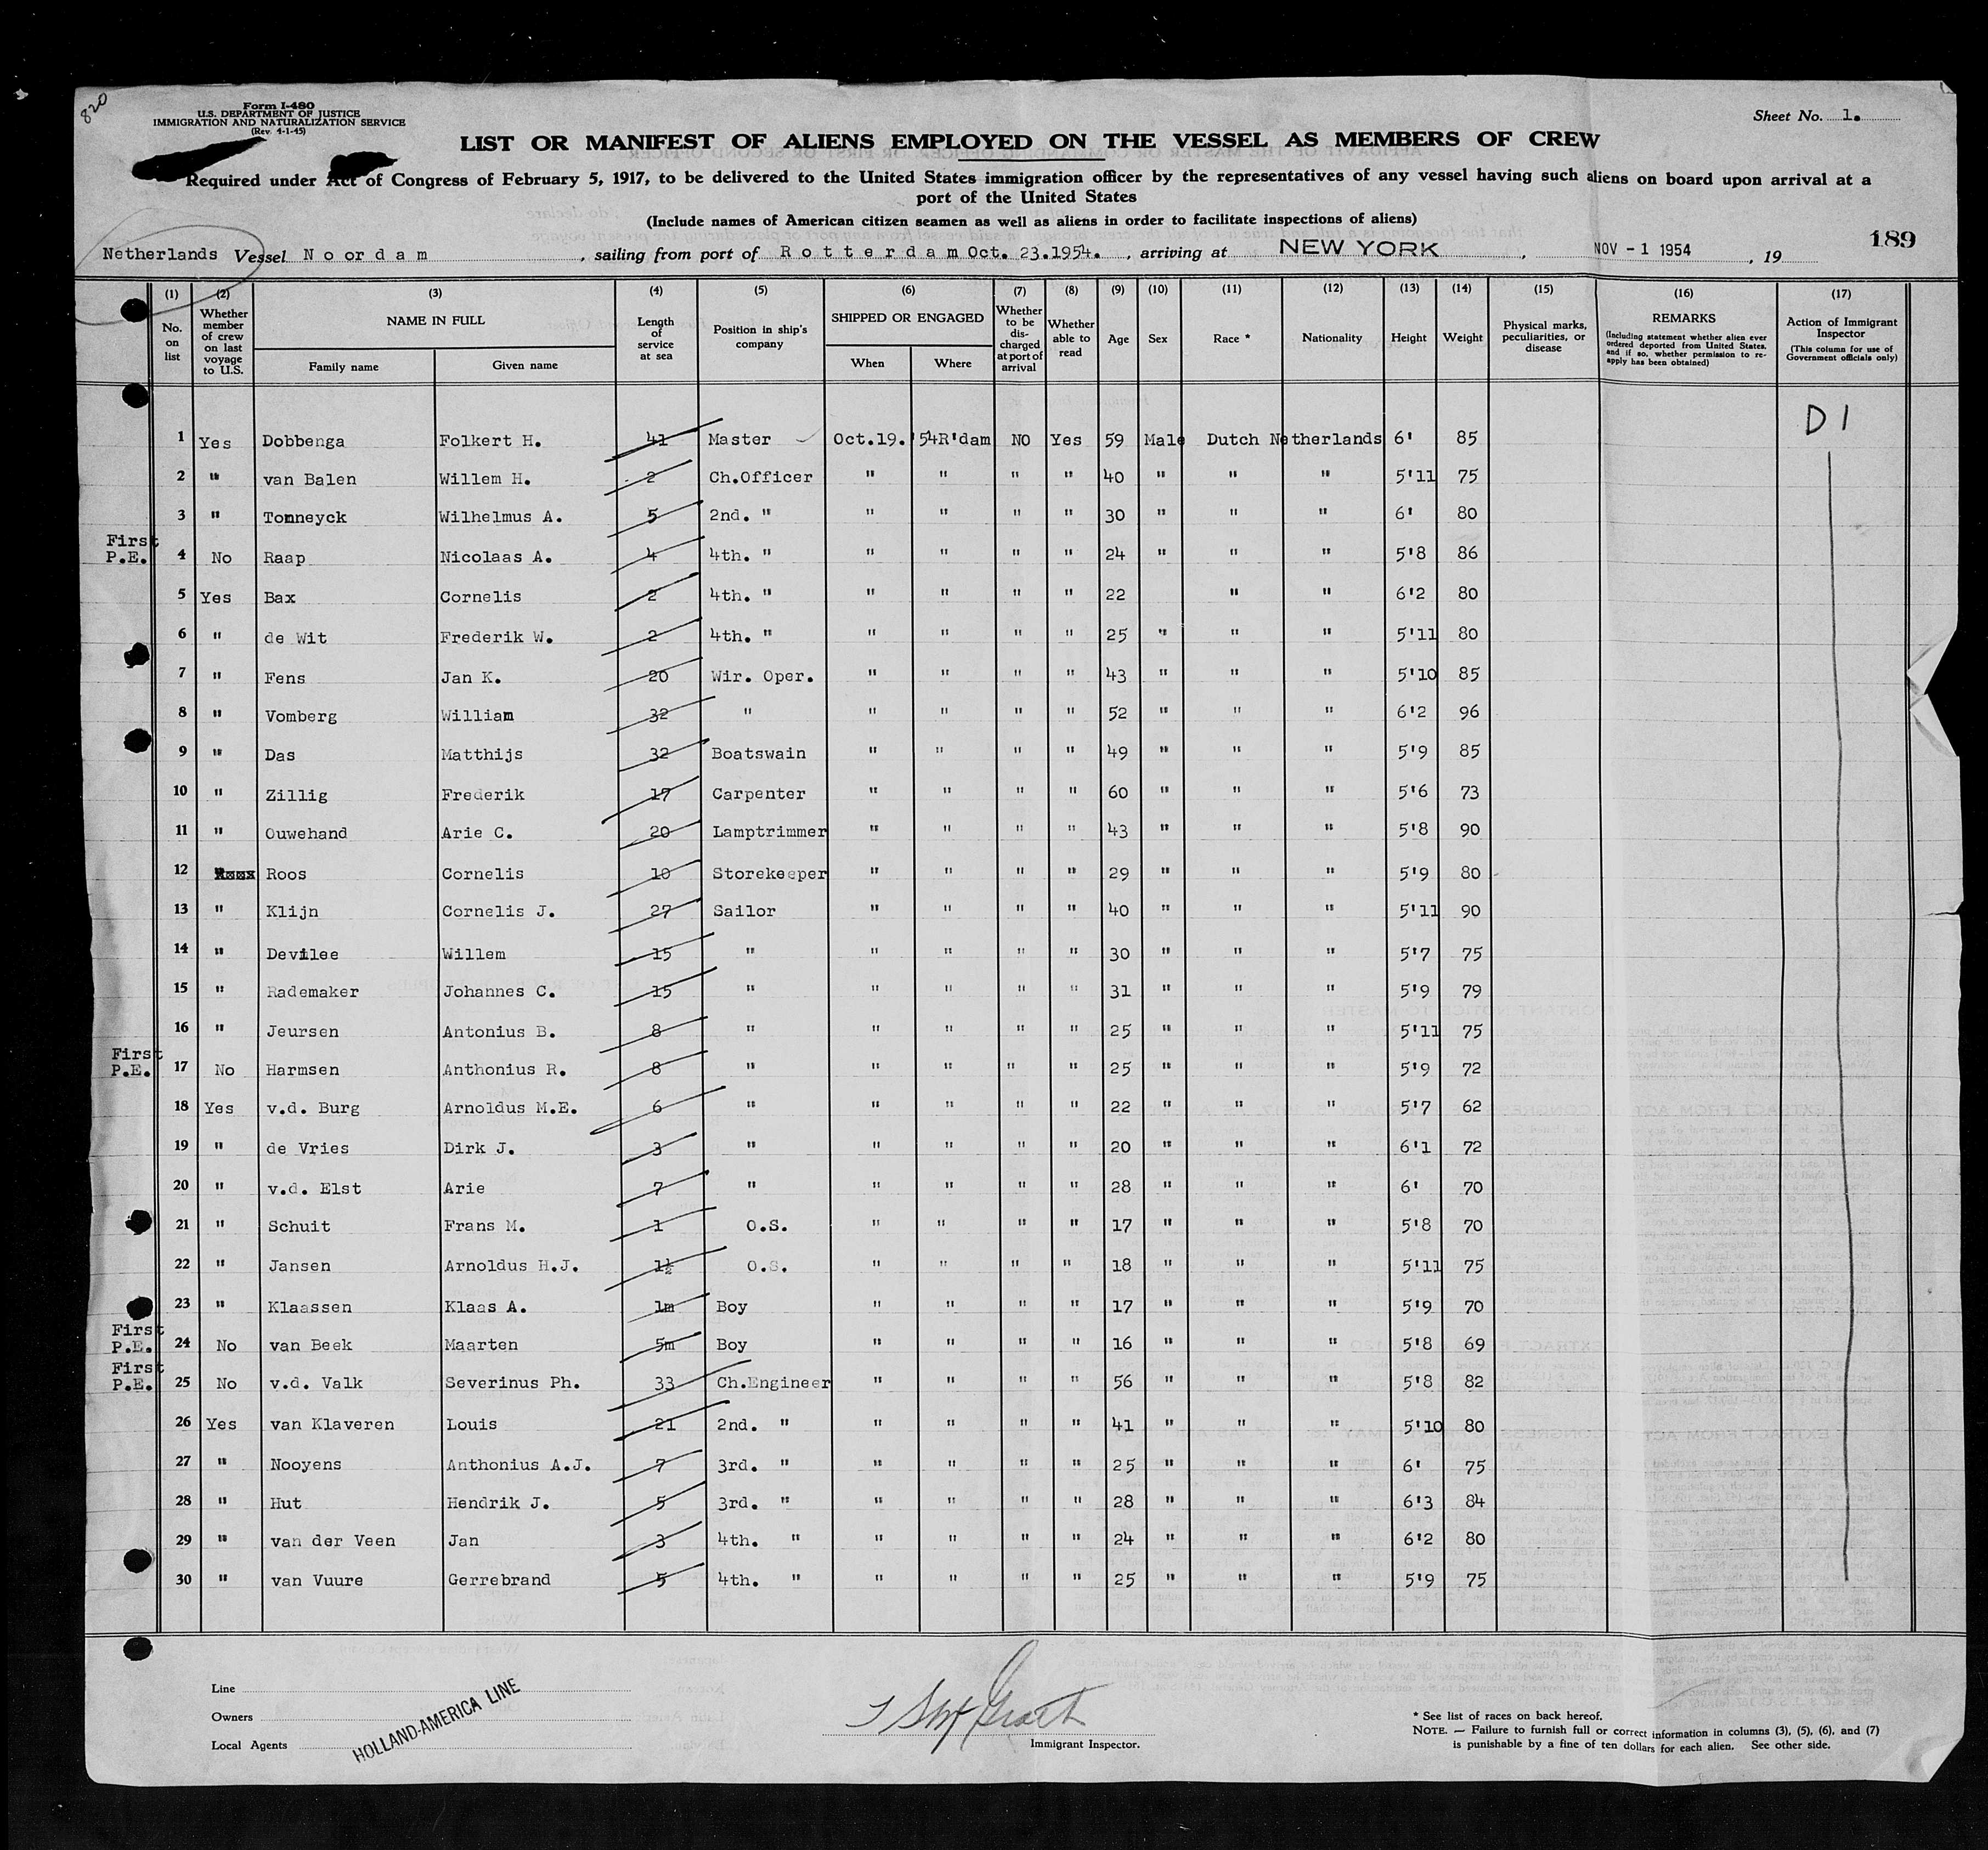 820
Form I-480
U.S. DEPARTMENT OF JUSTICE
IMMIGRATION AND NATURALIZATION SERVICE
(Rev. 4-1-45)
Sheet No. 1.
LIST OR MANIFEST OF ALIENS EMPLOYED ON THE VESSEL AS MEMBERS OF CREW
Required under Act of Congress of February 5, 1917, to be delivered to the United States immigration officer by the representatives of any vessel having such aliens on board upon arrival at a
port of the United States
(Include names of American citizen seamen as well as aliens in order to facilitate inspections of aliens)
189
Netherlands Vessel Noordam, sailing from port of Rotterdam Oct. 23.1954., arriving at NEW YORK, NOV - 1 1954, 19
(1) No. on list (2) Whether member of crew on last voyage to U.S. (3) NAME IN FULL Family name Given name (4) Length of service at sea (5) Position in ship's company (6) SHIPPED OR ENGAGED When Where (7) Whether to be dis-charged at port of arrival (8) Whether able to read (9) Age (10) Sex (11) Race * (12) Nationality (13) Height (14) Weight (15) Physical marks, peculiarities, or disease (16) REMARKS (Including statement whether alien ever ordered deported from United States, and if so, whether permission to re-apply has been obtained) (17) Action of Immigrant Inspector (This column for use of Government officials only)
D1
1 Yes Dobbenga Folkert H. 41 Master Oct.19.'54 R'dam NO Yes 59 Male Dutch Netherlands 6' 85
2 " van Balen Willem H. 2 Ch.Officer " " " " 40 " " " 5'11 75
3 " Tonneyck Wilhelmus A. 5 2nd. " " " " " 30 " " " 6' 80
First P.E. 4 No Raap Nicolaas A. 4 4th. " " " " " 24 " " " 5'8 86
5 Yes Bax Cornelis 2 4th. " " " " " 22 " " 6'2 80
6 " de Wit Frederik W. 2 4th. " " " " " 25 " " " 5'11 80
7 " Fens Jan K. 20 Wir. Oper. " " " " 43 " " " 5'10 85
8 " Vomberg William 32 " " " " " 52 " " " 6'2 96
9 " Das Matthijs 32 Boatswain " " " " 49 " " " 5'9 85
10 " Zillig Frederik 17 Carpenter " " " " 60 " " " 5'6 73
11 " Ouwehand Arie C. 20 Lamptrimmer " " " " 43 " " " 5'8 90
12 Roos Cornelis 10 Storekeeper " " " " 29 " " " 5'9 80
13 " Klijn Cornelis J. 27 Sailor " " " " 40 " " " 5'11 90
14 " Devilee Willem 15 " " " " " 30 " " " 5'7 75
15 " Rademaker Johannes C. 15 " " " " " 31 " " " 5'9 79
16 " Jeursen Antonius B. 8 " " " " " 25 " " " 5'11 75
First P.E. 17 No Harmsen Anthonius R. 8 " " " " " 25 " " " 5'9 72
18 Yes v.d. Burg Arnoldus M.E. 6 " " " " " 22 " " " 5'7 62
19 " de Vries Dirk J. 3 " " " " " 20 " " " 6'1 72
20 " v.d. Elst Arie 7 " " " " " 28 " " " 6' 70
21 " Schuit Frans M. 1 O.S. " " " " 17 " " " 5'8 70
22 " Jansen Arnoldus H.J. 1½ O.S. " " " " 18 " " " 5'11 75
23 " Klaassen Klaas A. 1m Boy " " " " 17 " " " 5'9 70
First P.E. 24 No van Beek Maarten 5m Boy " " " " 16 " " " 5'8 69
First P.E. 25 No v.d. Valk Severinus Ph. 33 Ch.Engineer " " " " 56 " " " 5'8 82
26 Yes van Klaveren Louis 21 2nd. " " " " " 41 " " " 5'10 80
27 " Nooyens Anthonius A.J. 7 3rd. " " " " " 25 " " " 6' 75
28 " Hut Hendrik J. 5 3rd. " " " " " 28 " " " 6'3 84
29 " van der Veen Jan 3 4th. " " " " " 24 " " " 6'2 80
30 " van Vuure Gerrebrand 5 4th. " " " " " 25 " " " 5'9 75
Line
Owners
Local Agents
HOLLAND-AMERICA LINE
Immigrant Inspector.
* See list of races on back hereof.
NOTE. — Failure to furnish full or correct information in columns (3), (5), (6), and (7)
is punishable by a fine of ten dollars for each alien. See other side.